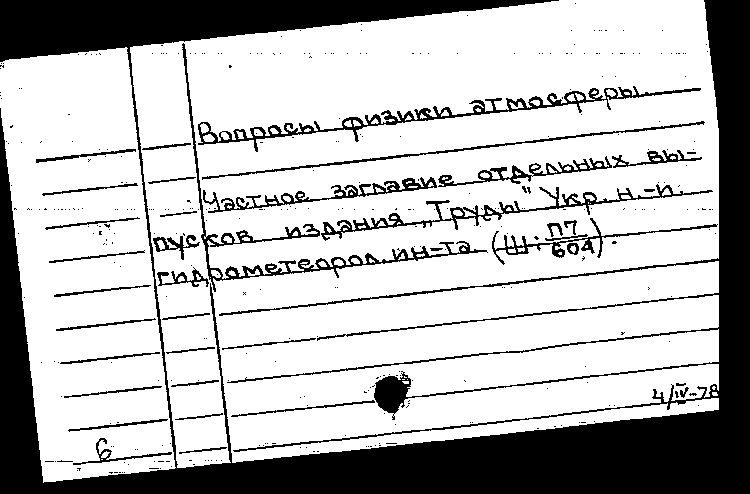 Вопросы физики атмосферы.
Частное заглавие отдельных вы-
пусков издания „Труды" Укр. н.-и.
гидрометеорол. ин-та (Ш: П7/604).
4/IV-78
6